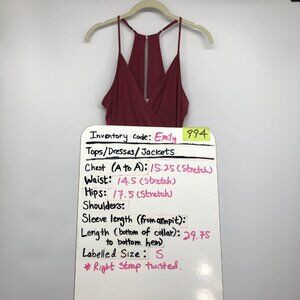 Inventory code: Emily 994
Tops/Dresses/Jackets
Chest (A to A): 15.25 (Stretch)
Waist: 14.5 (Stretch)
Hips: 17.5 (Stretch)
Shoulders:
Sleeve length (from armpit):
Length (bottom of collar): 29.75
to bottom hem)
Labelled Size: S
* Right Strap twisted.